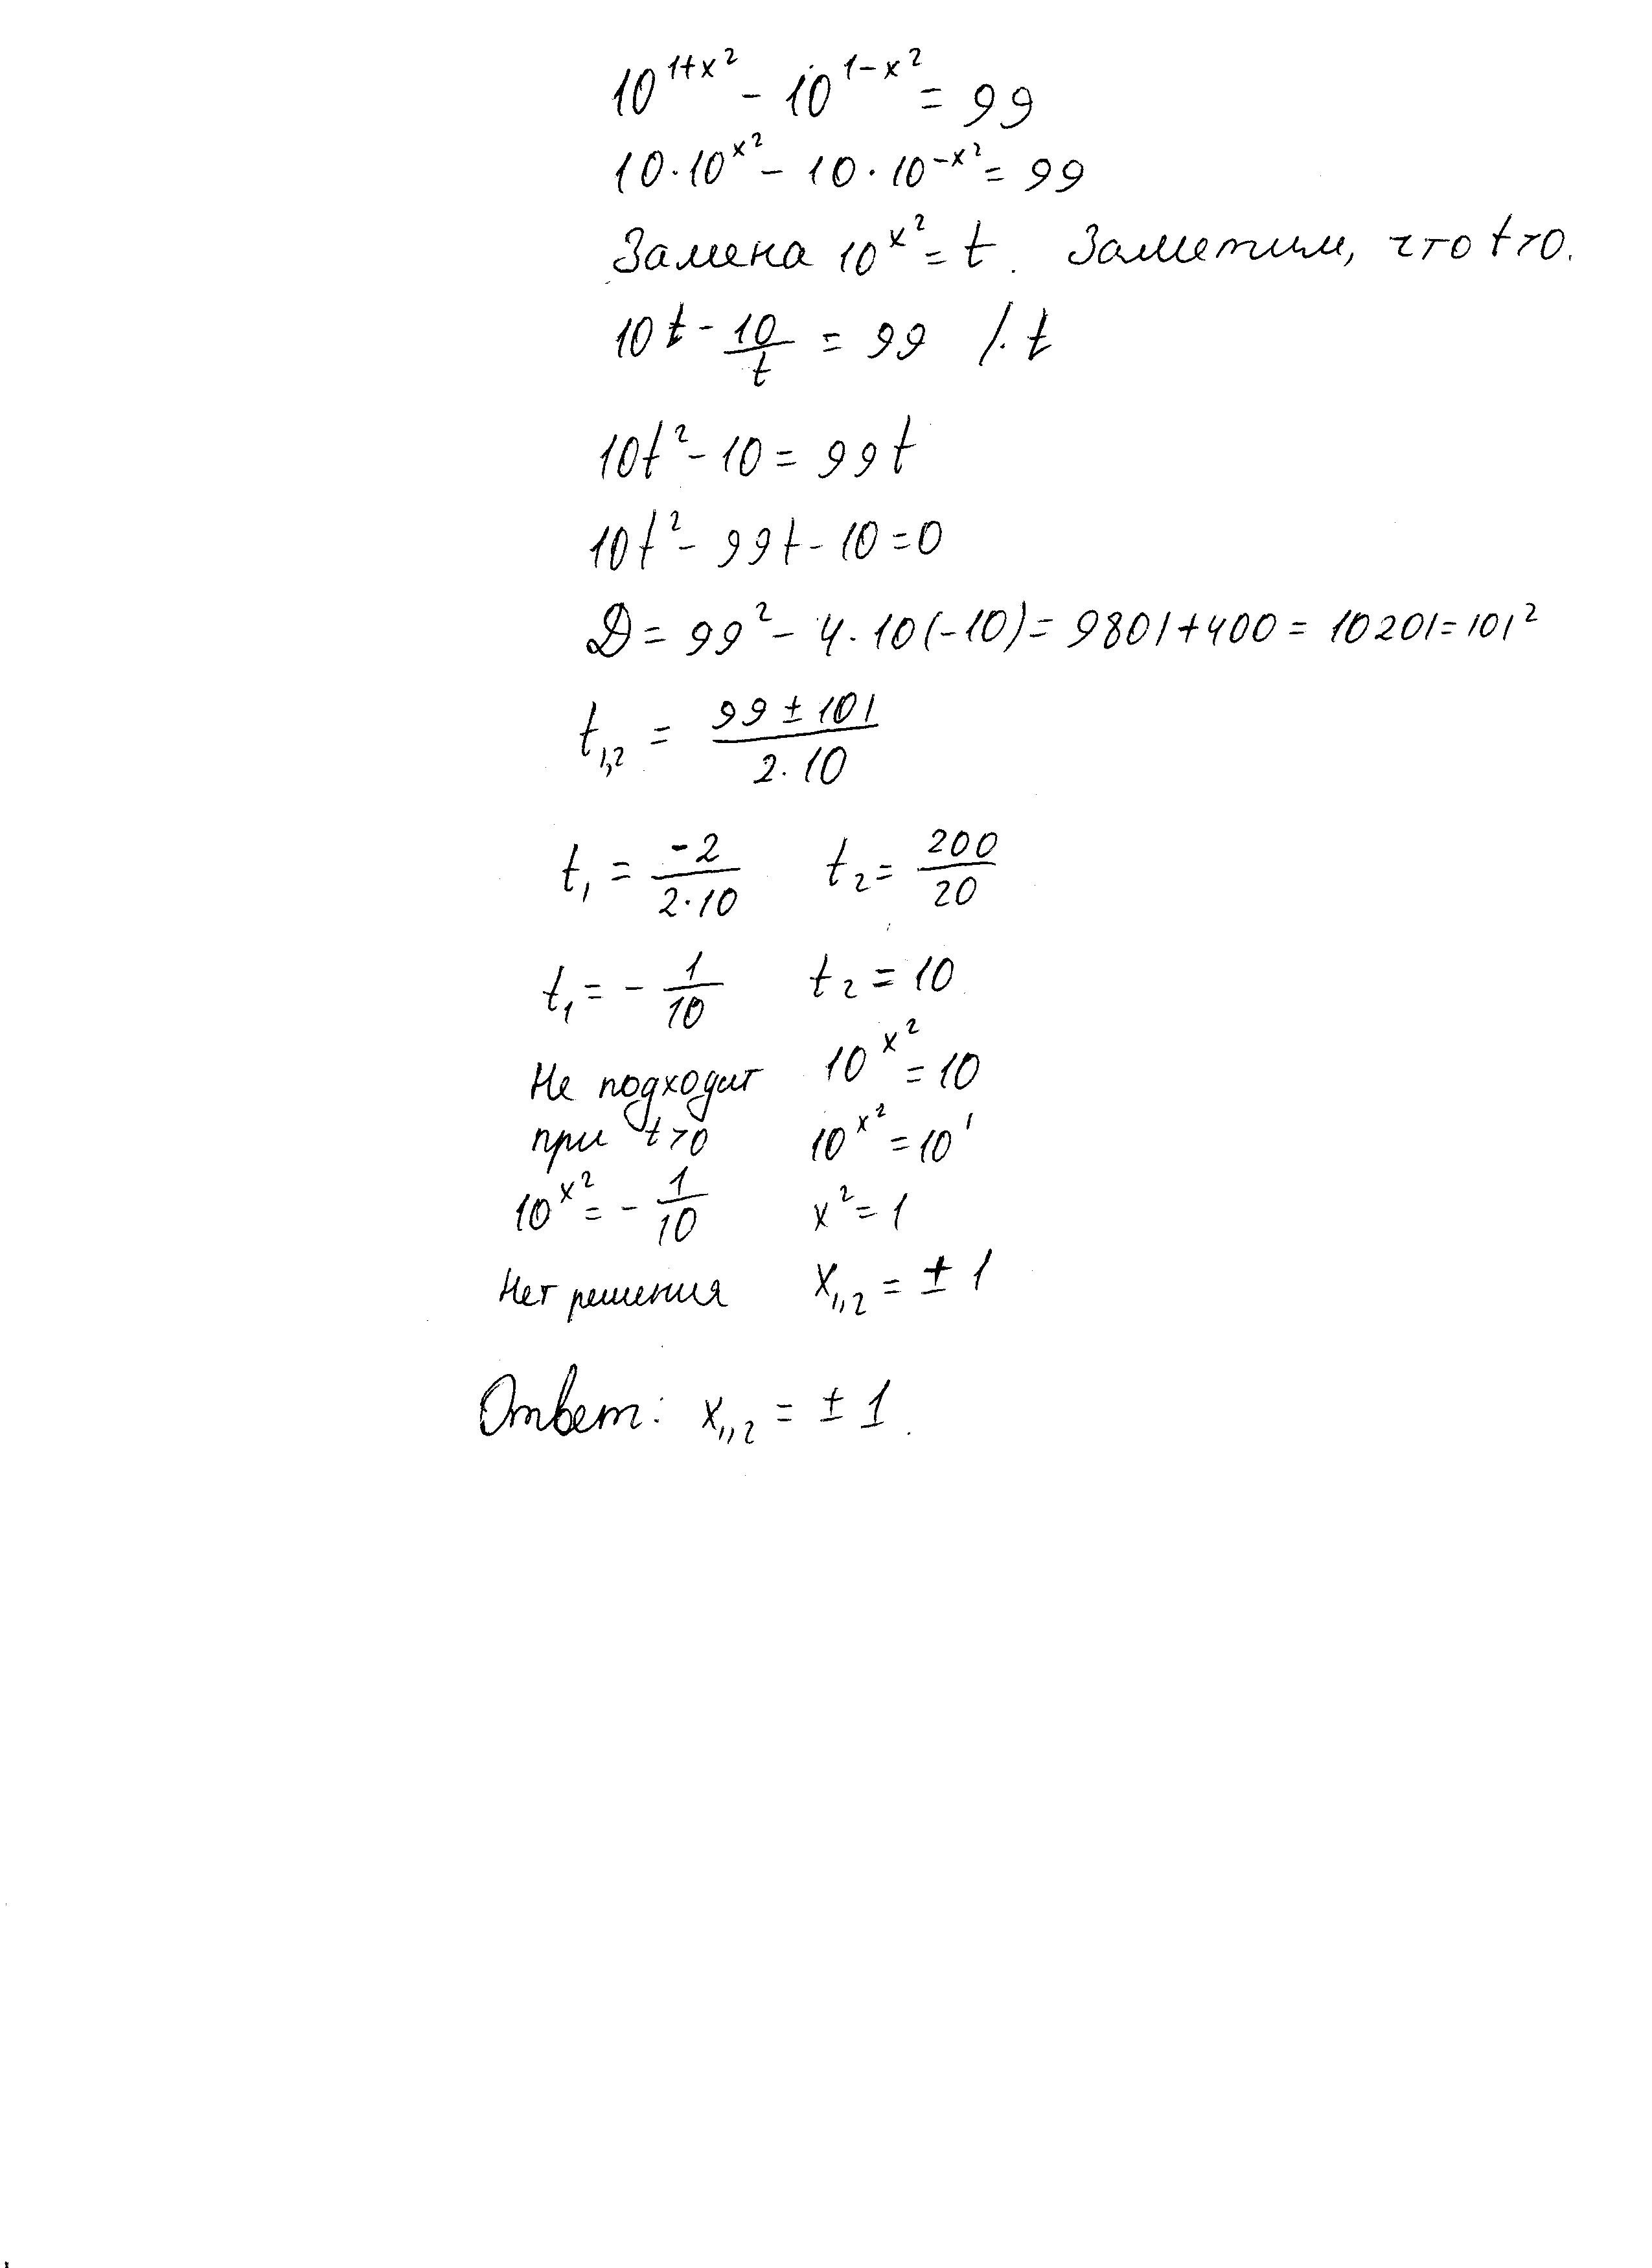 10^{1+x^2} - 10^{1-x^2} = 99
10·10^{x^2} - 10·10^{-x^2} = 99
Замена 10^{x^2} = t. Заметим, что t>0.
10t - \frac{10}{t} = 99 /·t
10t^2 - 10 = 99t
10t^2 - 99t - 10 = 0
D = 99^2 - 4·10(-10) = 9801+400 = 10201 = 101^2
t_{1,2} = \frac{99 ± 101}{2·10}
t_1 = \frac{-2}{2·10} t_2 = \frac{200}{20}
t_1 = -\frac{1}{10} t_2 = 10
Не подходит 10^{x^2} = 10
при t>0 10^{x^2} = 10^1
10^{x^2} = -\frac{1}{10} x^2 = 1
Нет решения x_{1,2} = ± 1
Ответ: x_{1,2} = ± 1.